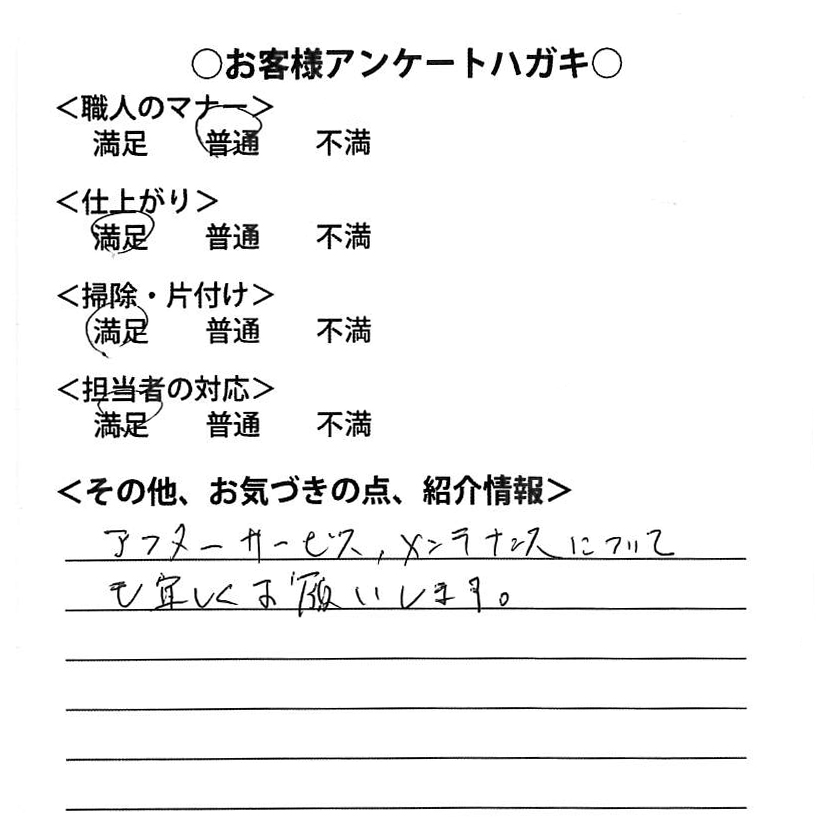 ○お客様アンケートハガキ○
＜職人のマナー＞
満足 普通 不満
＜仕上がり＞
満足 普通 不満
＜掃除・片付け＞
満足 普通 不満
＜担当者の対応＞
満足 普通 不満
＜その他、お気づきの点、紹介情報＞
アフターサービス,メンテナンスについて
も宜しくお願いします。